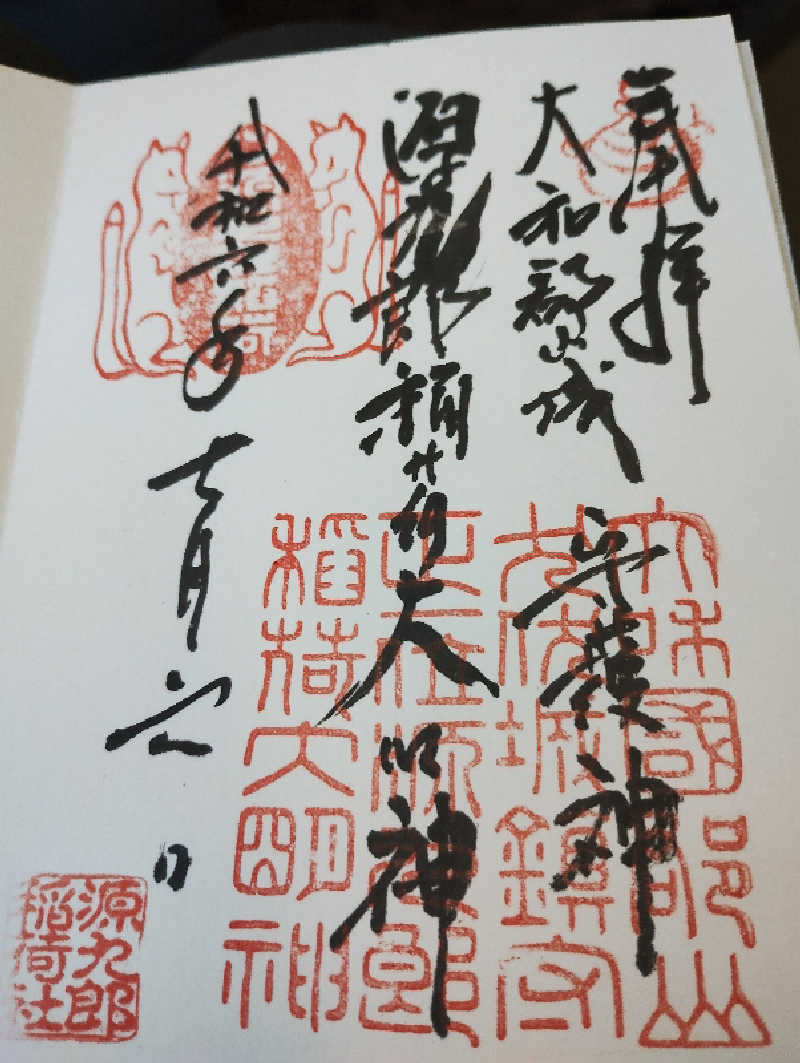 奉拝
大和郡山城 守護神
源九郎稲荷大明神
令和六年七月 日
大和國郡山
城鎮守
正一位源九郎
稲荷大明神
源九郎
稲荷社